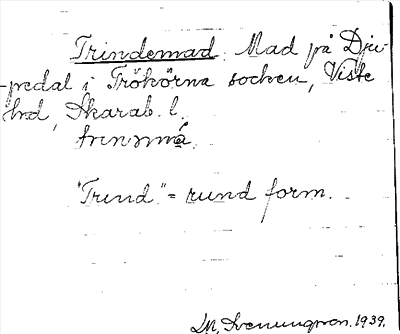 Trindemad. Mad på Dju-
pedal i Trökörna socken, Viste
hrd, Skarab. l.
"Trind" = rund form.
1939.